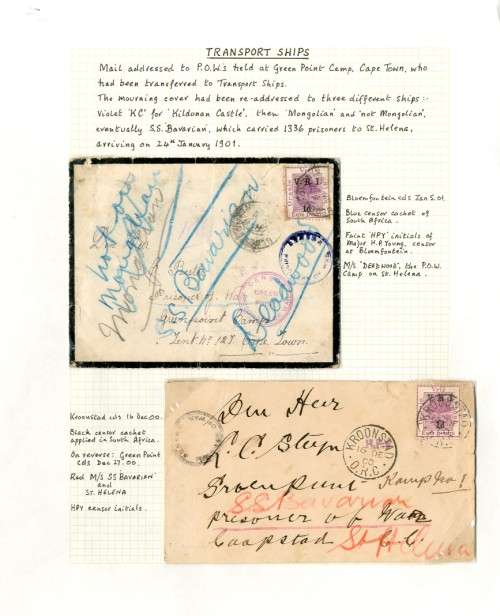 TRANSPORT SHIPS
Mail addressed to P.O.W.s held at Green Point Camp, Cape Town, who
had been transferred to Transport Ships.
The mourning cover had been re-addressed to three different ships:-
Violet 'KC' for 'Kildonan Castle', then 'Mongolian' and 'not Mongolian',
eventually S.S. Bavarian, which carried 1336 prisoners to St. Helena,
arriving on 24th January 1901.
Bloemfontein cds Jan 5.01.
Blue censor cachet of
South Africa.
Faint 'HPY' initials of
Major H.P. Young, censor
at Bloemfontein.
M/s 'DEADWOOD', the P.O.W.
Camp on St. Helena.
V.R.I.
1d
not on
Mongolian
Mongolian
S.S. Bavarian
Deadwood
Prisoner of War
Greenpoint Camp
Tent No 127. Cape Town
Kroonstad cds 16 Dec 00.
Black censor cachet
applied in South Africa.
On reverse: Green Point
cds Dec 27.00.
Red M/s SS BAVARIAN
and
ST. HELENA
HPY censor initials.
V.R.I.
1d
KROONSTAD
16 DE
O.R.C.
Den Heer
L. C. Steyn
Groenpunt Kamp No 1
SS Bavarian
prisoner of War
Caapstad C.C.
St Helena